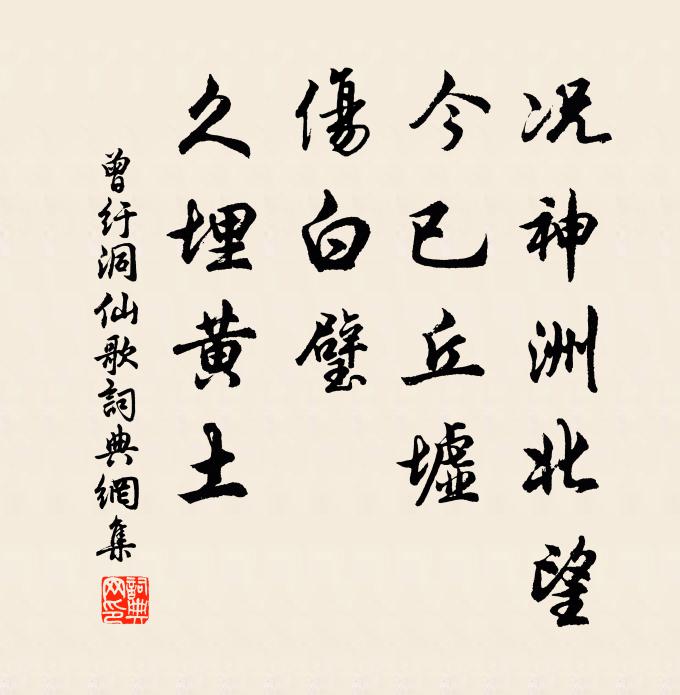 况神洲北望
今已丘墟
傷白璧
久埋黄土
曾纡洞仙歌詞典網集
詞典网印